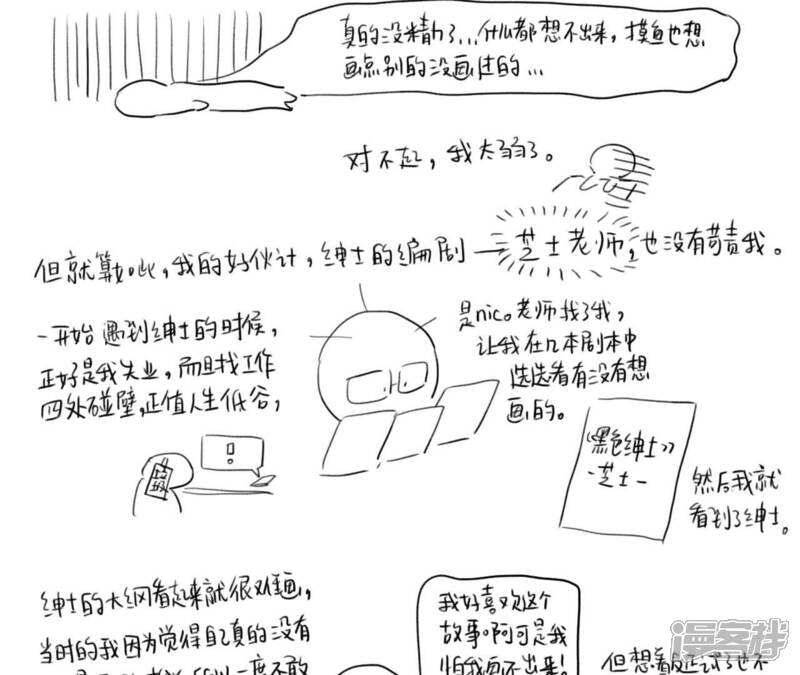 真的没精力了...什么都想不出来，摸鱼也想
画点别的没画过的...
对不起，我太弱了。
但就算如此，我的好伙计，绅士的编剧—芝士老师，也没有苛责我。
一开始遇到绅士的时候，
正好是我失业，而且找工作
四处碰壁，正值人生低谷，
是nico老师找了我，
让我在几本剧本中
选选看有没有想
画的。
《黑色绅士》
-芝士-
然后我就
看到了绅士。
绅士的大纲看起来就很难画，
当时的我因为觉得自己真的没有
一度不敢
我好喜欢这个
故事啊可是我
怕我画不出来!
但想着反正试了也不
漫客栈